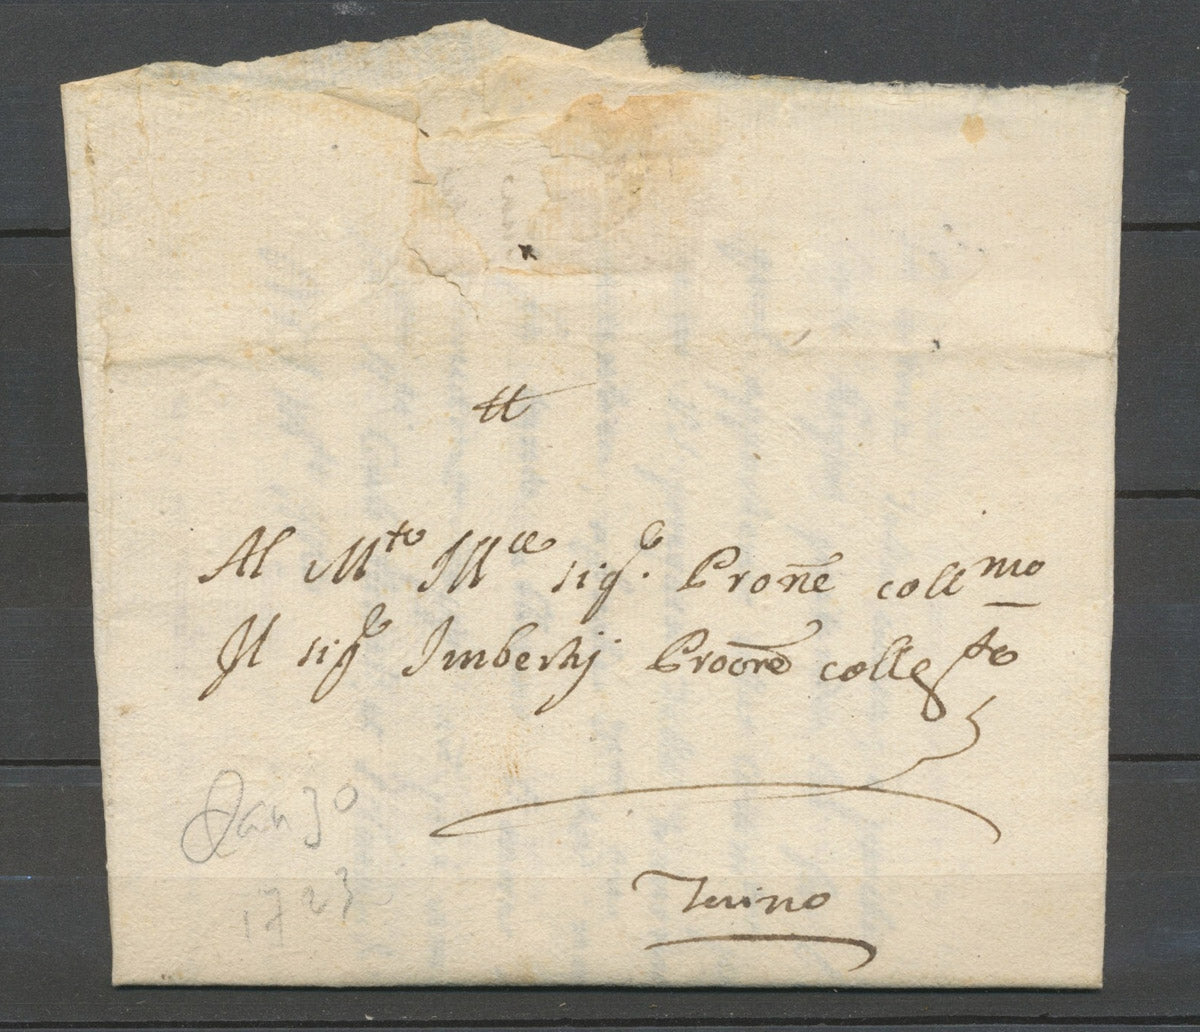 Al Mto Illce sigr. Prone collmo
Il sigr Imbertij Proore collegto
Turino
1723